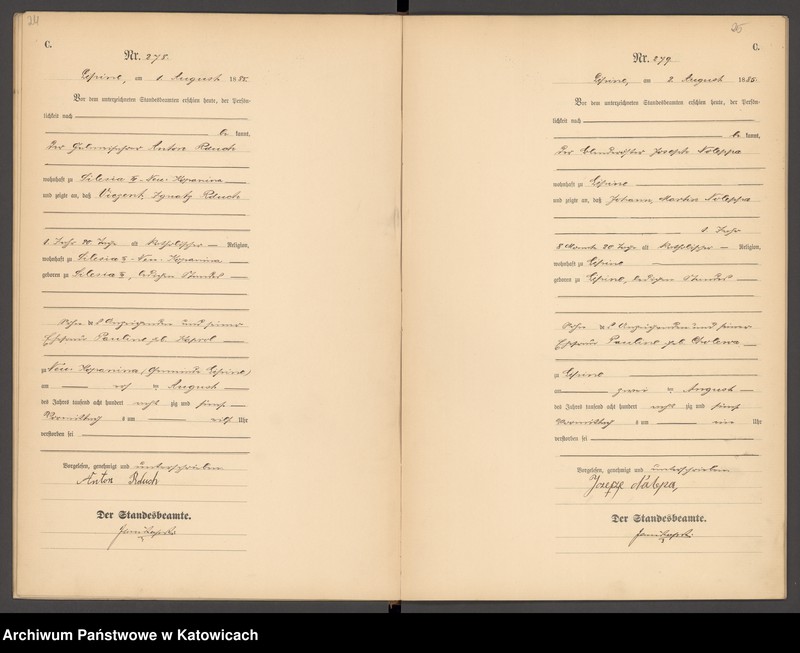 24
C.
Nr. 278.
Lipine, am 1. August 1885.
Vor dem unterzeichneten Standesbeamten erschien heute, der Persön-
lichkeit nach
be kannt,
der Anton Rduch
wohnhaft zu Silesia - Neu-Kopanina
und zeigte an, daß Vinzent Ignatz Rduch
1 Jahr Tage alt katholischer Religion,
wohnhaft zu Silesia - Neu-Kopanina
geboren zu Silesia ledigen Standes
Sohn des Anzeigenden und seiner
Ehefrau Pauline geb.
zu Neu-Kopanina (Gemeinde Lipine)
am August
des Jahres tausend acht hundert acht zig und fünf
Vormittag s um Uhr
verstorben sei
Vorgelesen, genehmigt und unterschrieben
Anton Rduch
Der Standesbeamte.
25
C.
Nr. 279
Lipine, am 2. August 1885.
Vor dem unterzeichneten Standesbeamten erschien heute, der Persön-
lichkeit nach
be kannt,
der Joseph Noleppa
wohnhaft zu Lipine
und zeigte an, daß Johann Martin Noleppa
1 Jahr
8 Monate Tage alt katholischer Religion,
wohnhaft zu Lipine
geboren zu Lipine, ledigen Standes
Sohn des Anzeigenden und seiner
Ehefrau Pauline geb.
zu Lipine
am zwei August
des Jahres tausend acht hundert acht zig und fünf
Vormittag s um Uhr
verstorben sei
Vorgelesen, genehmigt und unterschrieben
Der Standesbeamte.
Archiwum Państwowe w Katowicach